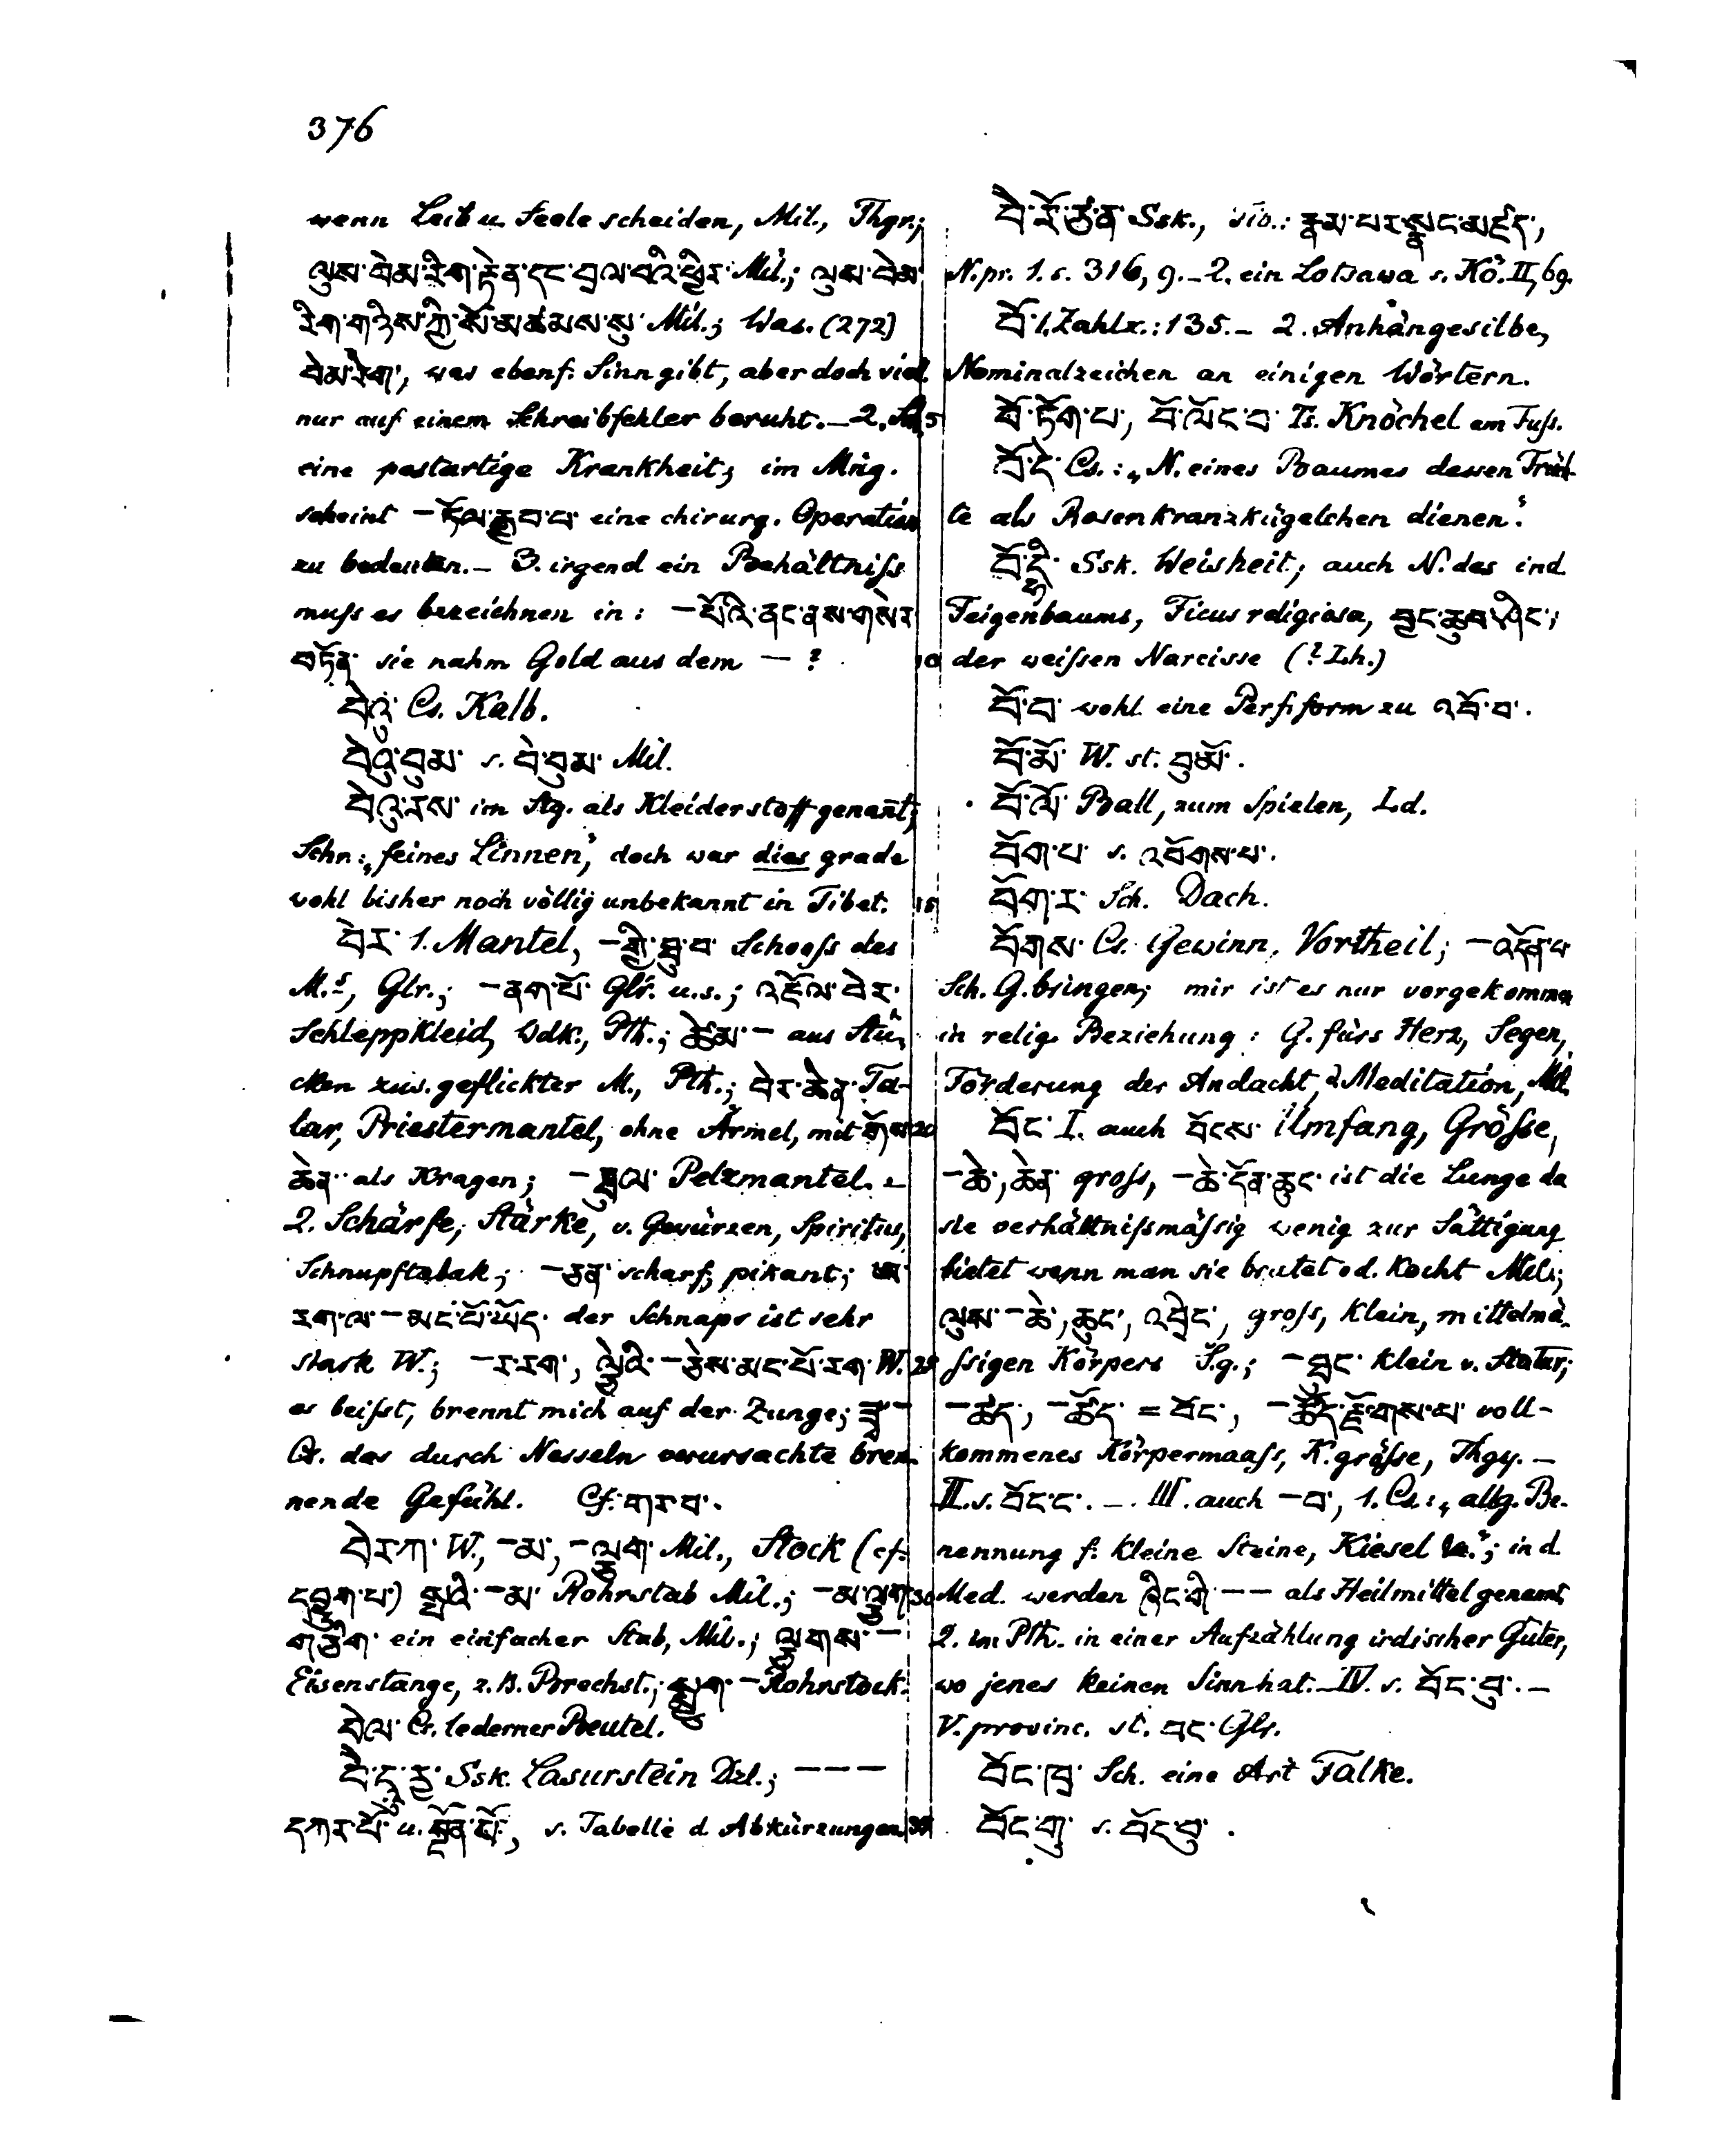 376
wenn Leib u. Seele scheiden, Mil., Thgr.;
ལུས་བེམ་རིག་རྟེན་དང་བྲལ་བའི་ཕྱིར་ Mil.; ལུས་བེམ་
རིག་གཉིས་ཀྱི་སོ་མཚམས་སུ་ Mil.; Was. (272)
བེམ་རིག་, was ebenf. Sinn gibt, aber doch viel.
nur auf einem Schreibfehler beruht. – 2.
eine pestartige Krankheit; im Mṅg.
scheint – རྒྱབ་པ་ eine chirurg. Operation
zu bedeuten. – 3. irgend ein Behältniss
muss es bezeichnen in: – པོའི་ནང་ནས་གསེར་
བཏོན་ sie nahm Gold aus dem – ?
བེའུ་ Cs. Kalb.
བེའུ་བུམ་ s. བེ་བུམ་ Mil.
བེའུ་རས་ im Stg. als Kleiderstoff genannt;
Schn: „feines Linnen“, doch war dies grade
wohl bisher noch völlig unbekannt in Tibet.
བེར་ 1. Mantel, – གྱི་ཐུ་བ་ Schooss des
M.s, Glr.; – ནག་པོ་ Glr. u.s.; འཇོལ་བེར་
Schleppkleid, Wdk., Pth.; ཚེམ་ – aus Stü-
cken zus. geflickter M., Pth.; བེར་ཆེན་ Ta-
lar, Priestermantel, ohne Ärmel, mit གོས་
ཆེན་ als Kragen; – སྤུལ་ Pelzmantel. –
2. Schärfe, Stärke, v. Gewürzen, Spiritus,
Schnupftabak; – ཅན་ scharf, pikant; ཨ་
རག་ལ་ – མང་པོ་ཡོད་ der Schnaps ist sehr
stark W.; – ར་རག་, ལྕེའི་ – ཅེས་མང་པོ་རག་ W.
es beisst, brennt mich auf der Zunge; ཟྭ་ –
Cs. das durch Nesseln verursachte bren-
nende Gefühl. Cf. གར་བ་.
བེར་ཀ་ W., – མ་, – ལྕག་ Mil., Stock (cf.
དབྱུག་པ་) སྨྱུའི་ – མ་ Rohrstab Mil.; – མ་ལྕུག་
གཅིག་ ein einfacher Stab, Mil.; ལྕགས་ –
Eisenstange, z.B. Brechst.; སྨྱུག་ – Rohrstock.
བེལ་ Cs. lederner Beutel.
བེ་དུ་རྱ་ Ssk. Lasurstein Dzl.; – – –
དཀར་པོ་ u. སྔོན་པོ་, s. Tabelle d Abkürzungen
བེ་རོ་ཙ་ན་ Ssk., tib.: རྣམ་པར་སྣང་མཛད་,
N.pr. 1. s. 316, 9. – 2. ein Lotsawa s. Kö. II, 69.
བོ་ 1. Zahlz.: 135. – 2. Anhängesilbe,
Nominalzeichen an einigen Wörtern.
བོ་ཏོག་པ་, བོ་ལོང་བ་ Ts. Knöchel am Fuss.
བོ་དེ་ Cs.: „N. eines Baumes dessen Früch-
te als Rosenkranzkügelchen dienen“.
བོ་དྷི་ Ssk. Weisheit; auch N. des ind.
Feigenbaums, Ficus religiosa, བྱང་ཆུབ་ཤིང་;
der weissen Narcisse (? Lh.)
བོ་བ་ wohl eine Perf. form zu འབོ་བ་.
བོ་མོ་ W. st. བུ་མོ་.
བོ་ལོ་ Ball, zum Spielen, Ld.
བོག་པ་ s. འབོགས་པ་.
བོག་ར་ Sch. Dach.
བོགས་ Cs. Gewinn, Vortheil; – འདོན་པ་
Sch. G. bringen; mir ist es nur vorgekommen
in relig. Beziehung: G. fürs Herz, Segen,
Förderung der Andacht, d Meditation, Mil.
བོང་ I. auch བོངས་ Umfang, Grösse,
– ཆེ་, ཆེན་ gross, – ཆེ་དོན་ཆུང་ ist die Lunge da
sie verhältnissmässig wenig zur Sättigung
bietet wenn man sie bratet od. kocht Mil.;
ལུས་ – ཆེ་, ཆུང་, འབྲིང་, gross, klein, mittelmä-
ssigen Körpers S.g.; – ཐུང་ klein v. Statur;
– ཚད་, – ཚོད་ = བོང་, – ཚོད་རྫོགས་པ་ voll-
kommenes Körpermaass, K. grösse, Thgy. –
II. s. བོང་ང་. – III. auch – བ་, 1. Cs.: „allg. Be-
nennung f. kleine Steine, Kiesel“; in d.
Med. werden – – als Heilmittel genannt
2. im Pth. in einer Aufzählung irdischer Güter,
wo jenes keinen Sinn hat. – IV. s. བོང་བུ་. –
V. provinc. st. བང་ Glr.
བོང་ཁྲ་ Sch. eine Art Falke.
བོང་གུ་ s. བོང་བུ་.